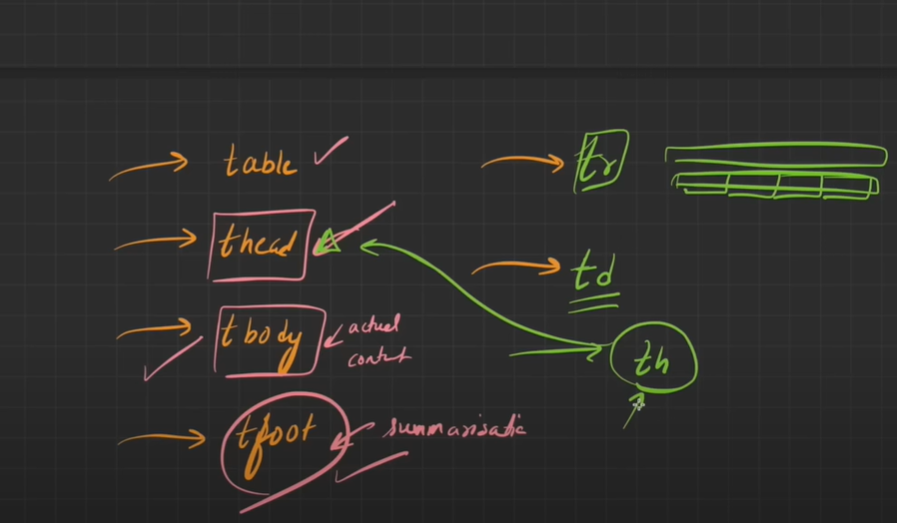 table
thead
tbody
actual
content
tfoot
summarisatio
tr
td
th